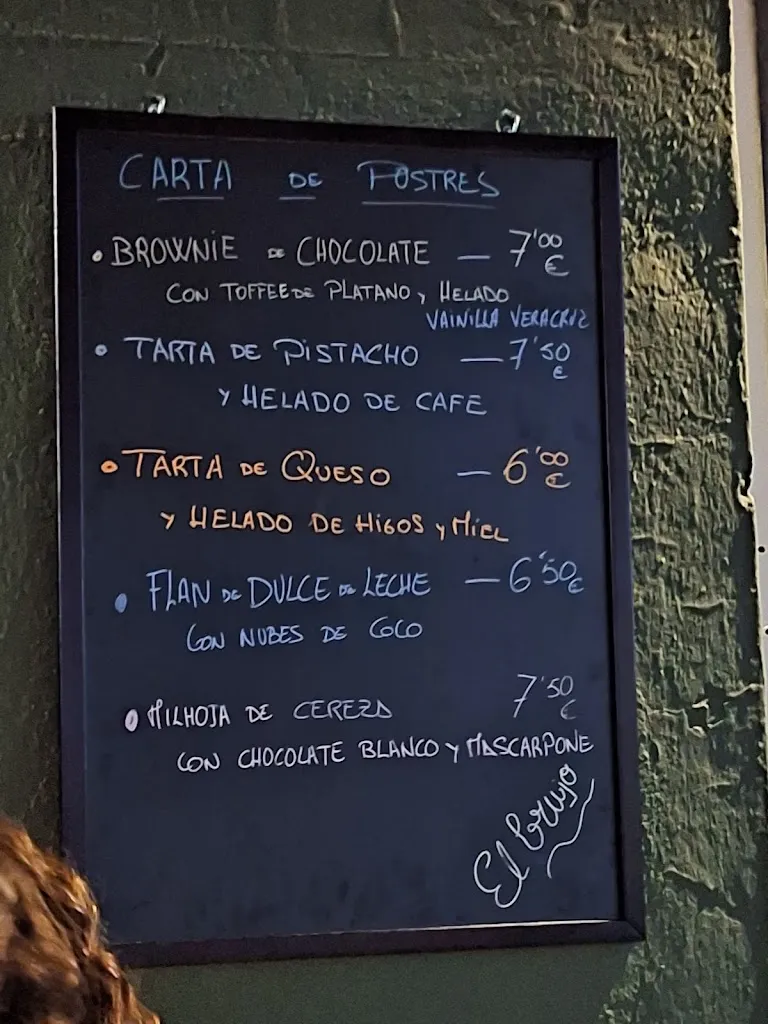 CARTA DE POSTRES
• BROWNIE DE CHOCOLATE — 7'00 €
CON TOFFEE DE PLATANO y HELADO
VAINILLA VERACRUZ
• TARTA DE PISTACHO — 7'50 €
Y HELADO DE CAFE
• TARTA DE QUESO — 6'00 €
Y HELADO DE HIGOS y MIEL
• FLAN DE DULCE DE LECHE — 6'50 €
CON NUBES DE COCO
• MILHOJA DE CEREZA 7'50 €
CON CHOCOLATE BLANCO y MASCARPONE
El brujo